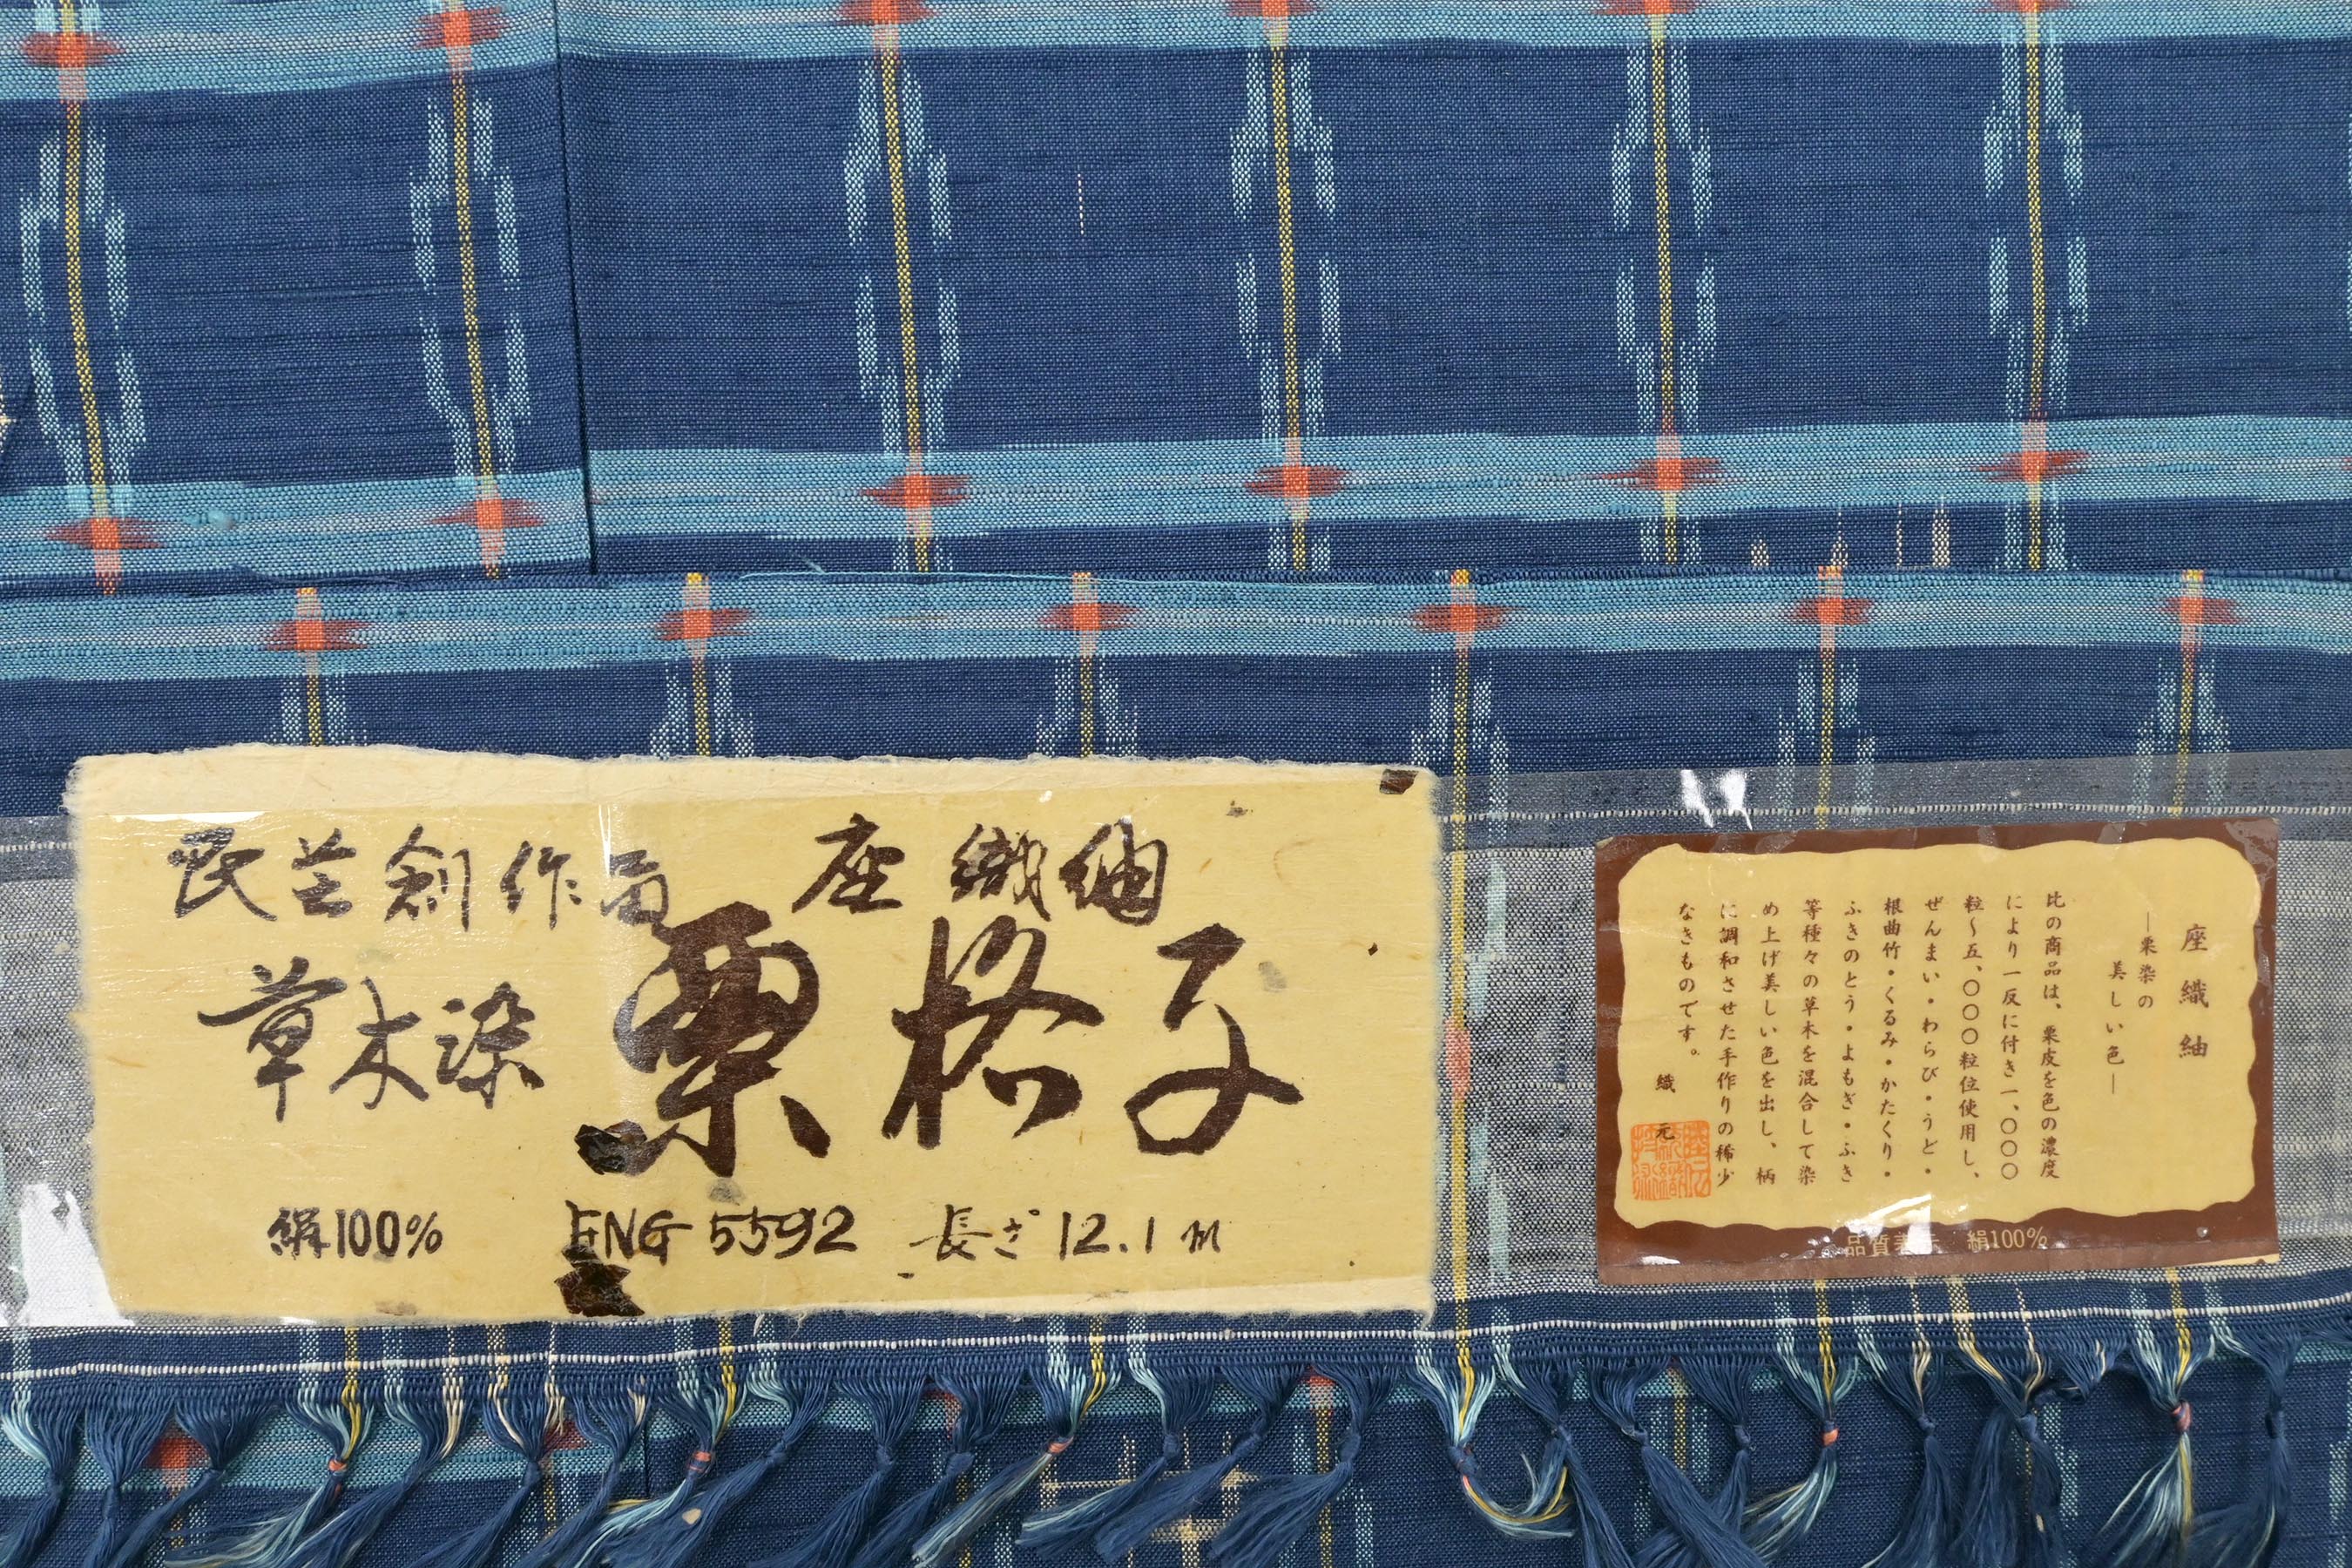 民芸創作品 座織紬
草木染 栗格子
絹100% ENG 5592 長さ 12.1m
座織紬
―栗染の
美しい色―
比の商品は、栗皮を色の濃度
により一反に付き一、〇〇〇
粒～五、〇〇〇粒位使用し、
ぜんまい・わらび・うど・
根曲竹・くるみ・かたくり・
ふきのとう・よもぎ・ふき
等種々の草木を混合して染
め上げ美しい色を出し、柄
に調和させた手作りの稀少
なきものです。
織元
品質表示 絹100%